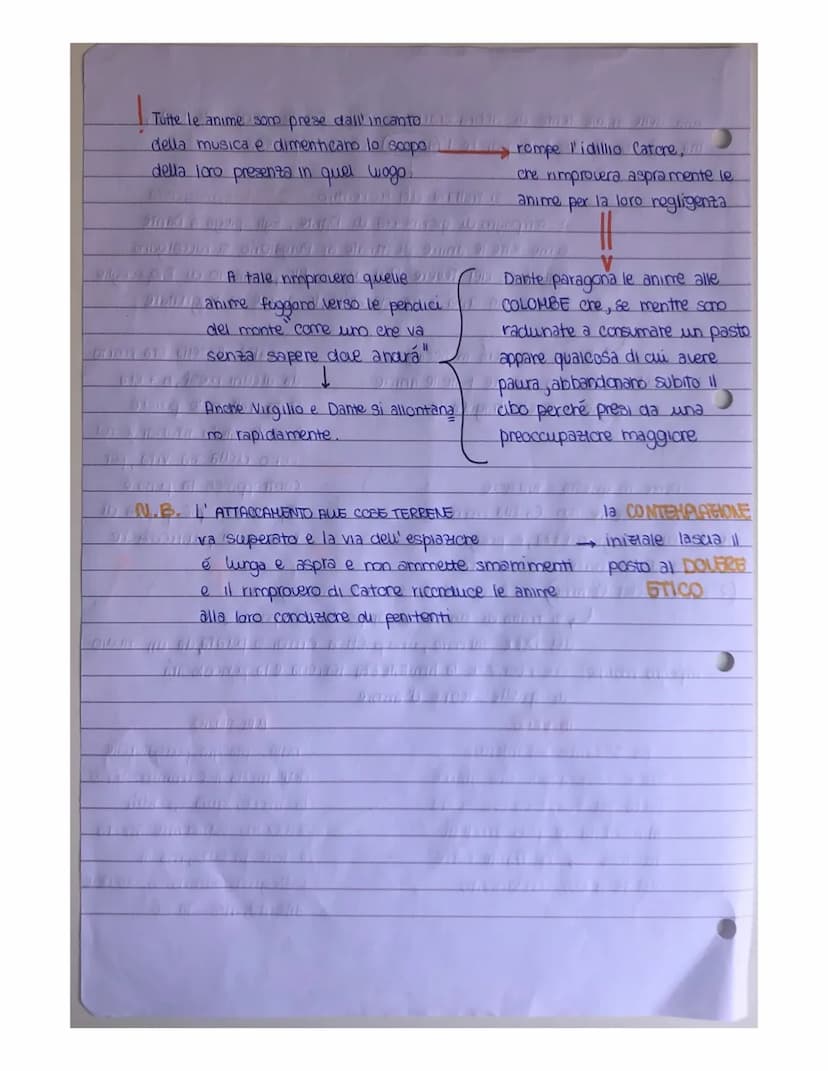 ! Tutte le anime sono prese dall'incanto
della musica e dimenticano lo scopo
della loro presenza in quel luogo.
→ rompe l'idillio Catone,
che rimprovera aspramente le
anime per la loro negligenza
A tale rimprovero quelle
anime fuggono verso le pendici
del monte "come uno che va
senza sapere dove andrá"
↓
Anche Virgilio e Dante si allontana
no rapidamente.
Dante paragona le anime alle
COLOMBE che, se mentre sono
radunate a consumare un pasto
appare qualcosa di cui avere
paura, abbandonano subito il
cibo perché presi da una
preoccupazione maggiore
N.B. L'ATTACCAMENTO ALLE COSE TERRENE
va superato e la via dell'espiazione
é lunga e aspra e non ammette smarrimenti
e il rimprovero di Catone riconduce le anime
alla loro condizione di penitenti
la CONTEMPLAZIONE
→ iniziale lascia il
posto al DOVERE
ETICO